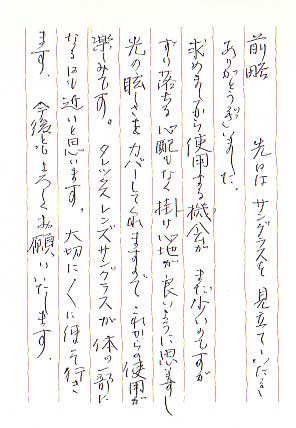 前略　先日は サングラスを 見立ていただき
ありがとうございました。
求めましてから使用する機会が まだ少いのですが
ずり落ちる心配もなく 掛け心地が良いように思いますし
光の眩しさを カバーしてくれますので これからの使用が
楽しみです。 タレックスレンズサングラスが 体の一部に
なる日も近いと思います。 大切に〳〵使って行き
ます。 今後ともよろしくお願いいたします。